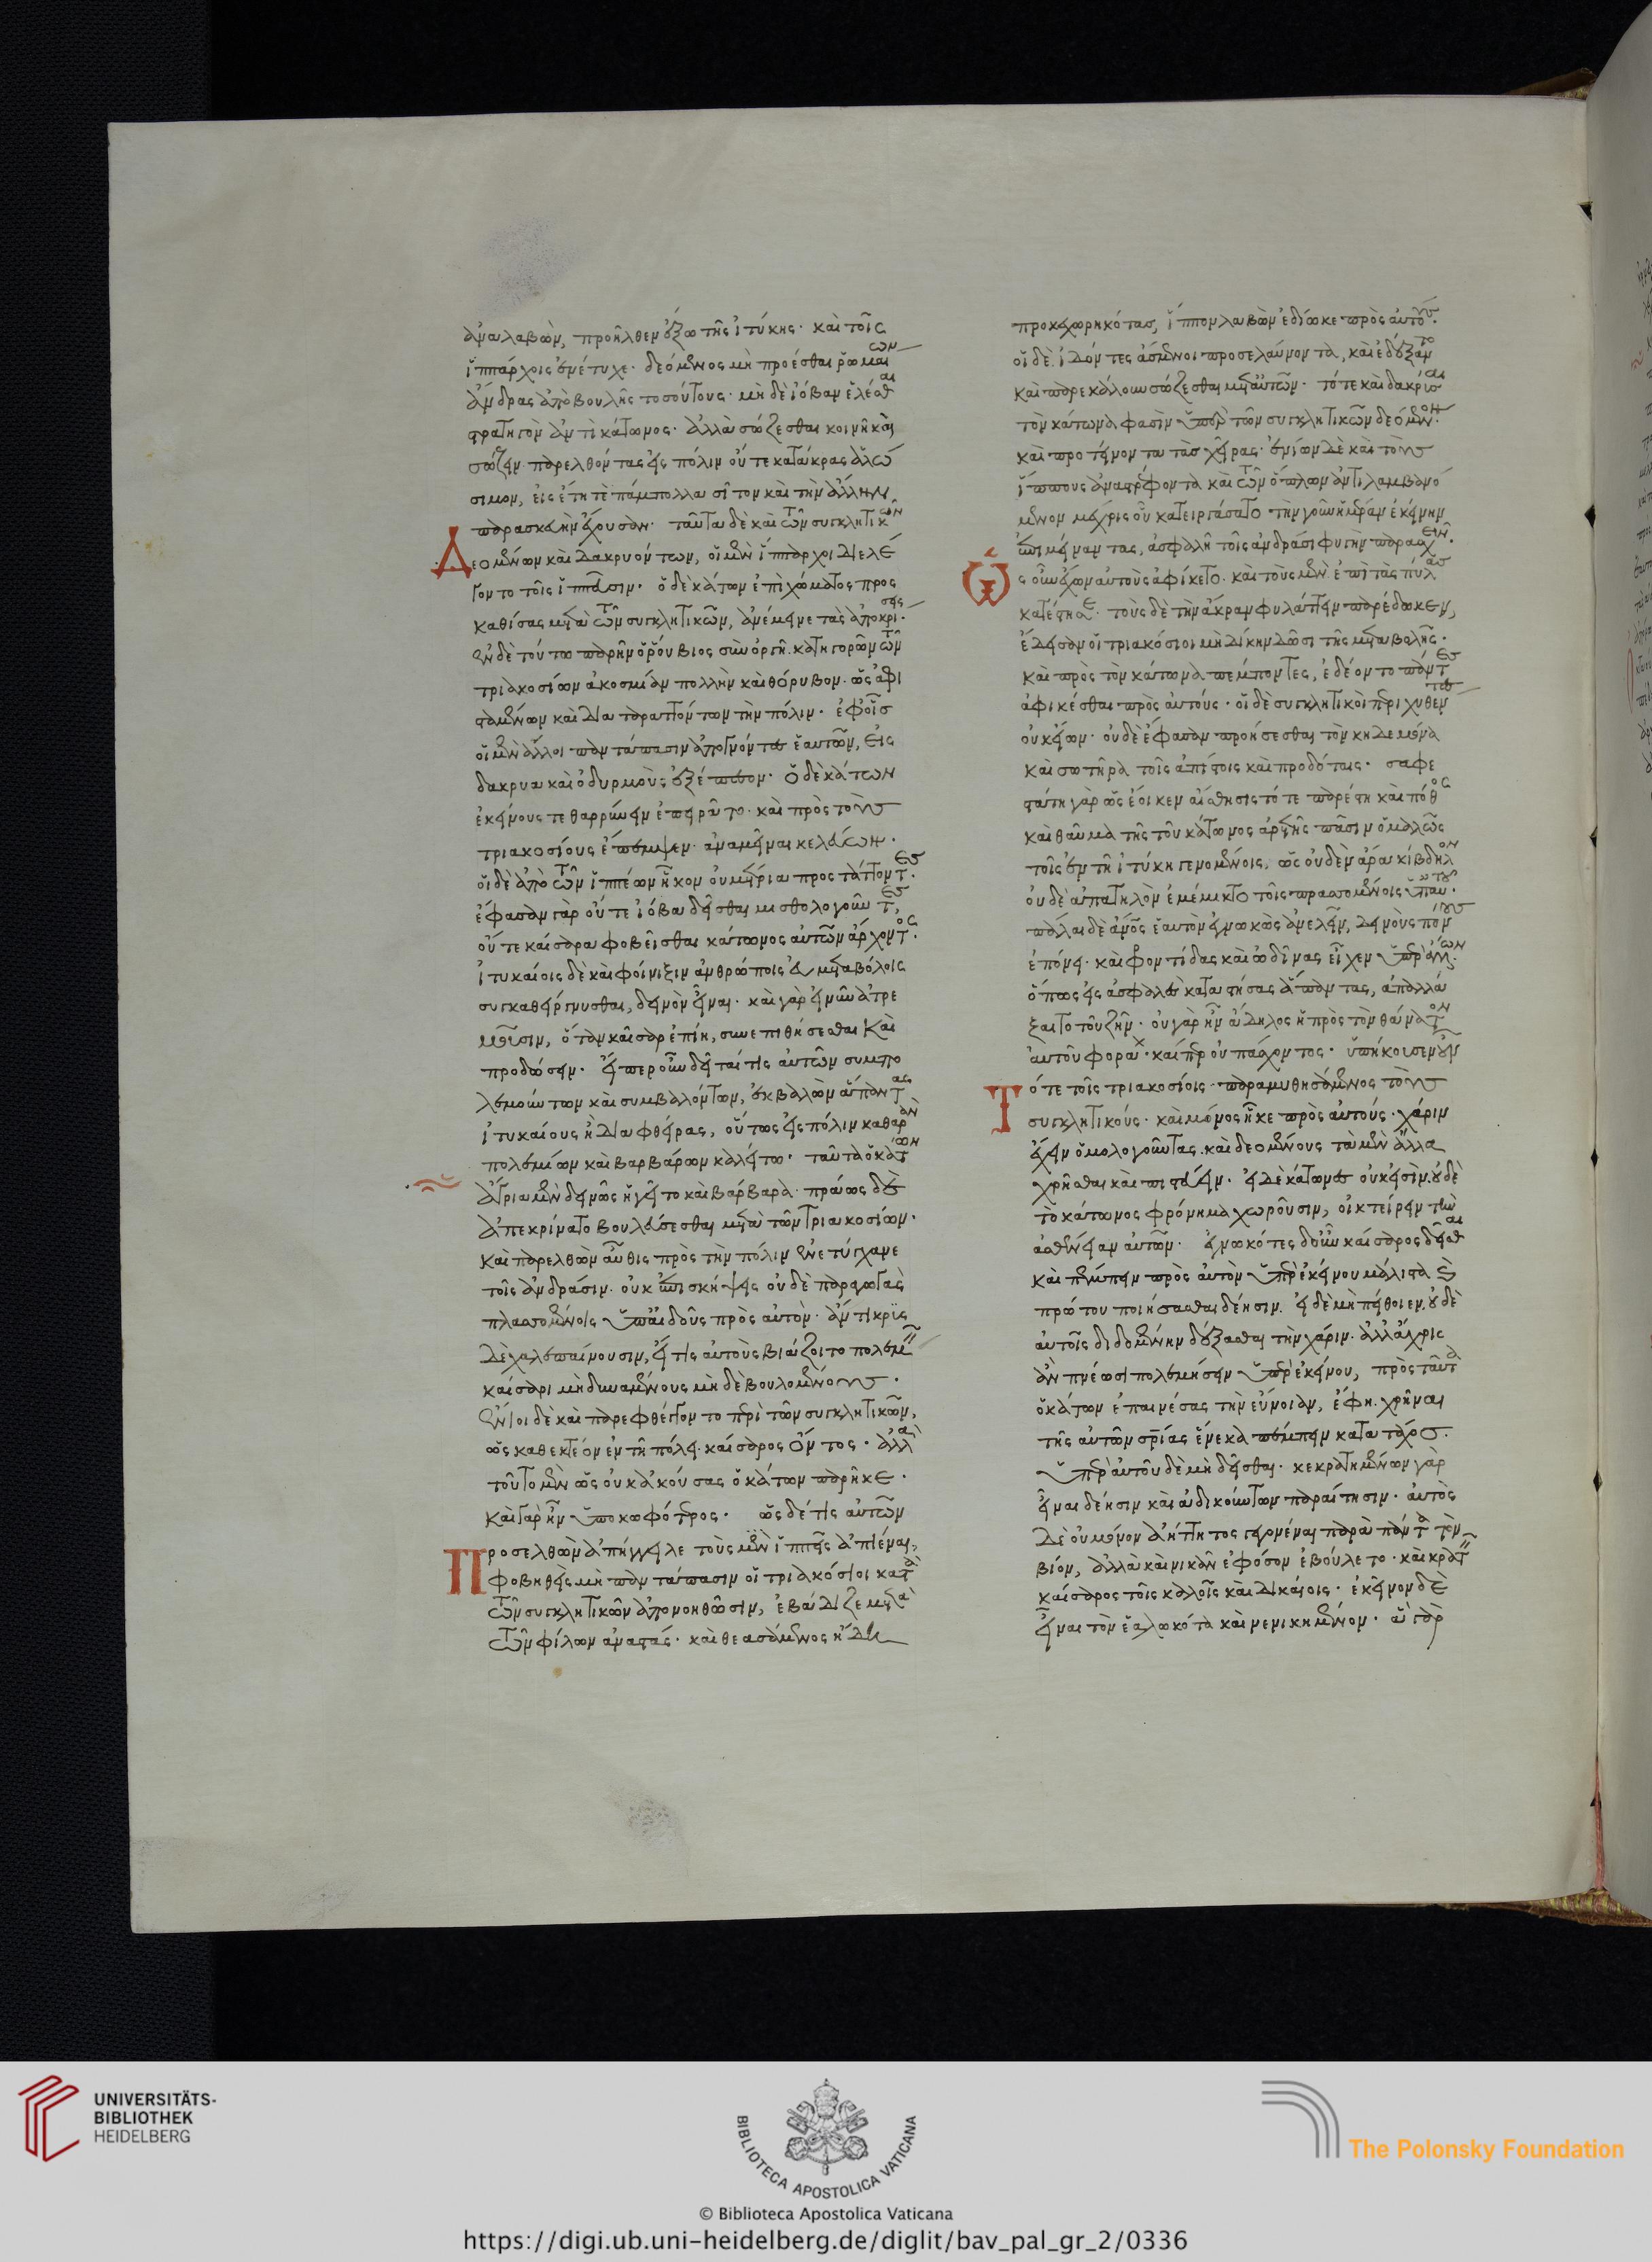 ἀναλαβὼν, προῆλθεν ἔξω τῆς ἰτύκης· καὶ τοῖς
ἱππάρχοις ἐνέτυχε· δεόμενος μὴ προέσθαι ῥωμαίων
ἄνδρας ἀπὸ βουλῆς τοσούτους· μὴ δὲ ἰόβαν ἑλέσθαι
στρατηγὸν ἀντὶ κάτωνος· ἀλλὰ σώζεσθαι κοινῇ καὶ
σώζειν· παρελθόντας εἰς πόλιν οὔτε κατάκρας ἁλώ
σιμον, εἰς ἔτη τὲ πάμπολλα σῖτον καὶ τὴν ἄλλην
παρασκευὴν ἔχουσαν· ταῦτα δὲ καὶ τῶν συγκλητικῶν
Δεομένων καὶ δακρυόντων, οἱ μὲν ἵππαρχοι διελέ
γοντο τοῖς ἱππεῦσιν· ὁ δὲ κάτων ἐπὶ χώματος προσ
καθίσας μετὰ τῶν συγκλητικῶν, ἀνέμεινε τὰς ἀποκρίσεις·
ἐν δὲ τούτω παρῆν ὁ ῥούβιος σὺν ὀργῇ· κατηγορῶν τῶν
τριακοσίων ἀκοσμίαν πολλὴν καὶ θόρυβον· ὡς ἀφι
σταμένων καὶ διαταραττόντων τὴν πόλιν· ἐφ οἷς
οἱ μὲν ἄλλοι παντάπασιν ἀπογνόντες ἑαυτῶν, εἰς
δάκρυα καὶ ὀδυρμοὺς ἐξέπεσον· ὁ δὲ κάτων
ἐκείνους τε θαρρύνειν ἐπειρᾶτο· καὶ πρὸς τοὺς
τριακοσίους ἔπεμψεν· ἀναμεῖναι κελεύων·
οἱ δὲ ἀπὸ τῶν ἱππέων ἧκον οὐ μέτρια προστάττοντες·
ἔφασαν γὰρ οὔτε ἰόβα δεῖσθαι μισθολογοῦντες,
οὔτε καίσαρα φοβεῖσθαι κάτωνος αὐτῶν ἄρχοντος·
ἰτυκαίοις δὲ καὶ φοίνιξιν ἀνθρώποις εὐμεταβόλοις
συγκαθείργνυσθαι, δεινὸν εἶναι· καὶ γὰρ εἰ νῦν ἀτρε
μοῦσιν, ὅταν καῖσαρ ἐπίῃ, συνεπιθήσεσθαι καὶ
προδώσειν· εἴπερ οὖν δεῖταί τις αὐτῶν συμπο
λεμούντων καὶ συμβαλόντων, ἐκβαλὼν ἅπαντας
ἰτυκαίους ἢ διαφθείρας, οὕτως εἰς πόλιν καθαρὰν
πολεμίων καὶ βαρβάρων καλείτω· ταῦτα ὁ κάτων
ἄγρια μὲν δεινῶς ἡγεῖτο καὶ βάρβαρα· πράως δὲ
ἀπεκρίνατο βουλεύσεσθαι μετὰ τῶν τριακοσίων·
καὶ παρελθὼν αὖθις πρὸς τὴν πόλιν ἐνετύγχανε
τοῖς ἀνδράσιν· οὐκέτι σκήψεις οὐδὲ παραγωγὰς
πλασσομένοις ὑπ αἰδοῦς πρὸς αὐτὸν· ἄντικρϋς
δὲ χαλεπαίνουσιν, εἴ τις αὐτοὺς βιάζοιτο πολεμεῖν
καίσαρι μὴ δυναμένους μὴ δὲ βουλομένους·
ἔνιοι δὲ καὶ παρεφθέγγοντο περὶ τῶν συγκλητικῶν,
ὡς καθεκτέον ἐν τῇ πόλει καίσαρος ὄντος· ἀλλὰ
τοῦτο μὲν ὡς οὐκ ἀκούσας ὁ κάτων παρῆκε·
καὶ γὰρ ἦν ὑποκωφότερος· ὡς δέ τις αὐτῶν
Προσελθὼν ἀπήγγειλε τοὺς μὲν ἱππεῖς ἀπιέναι,
φοβηθεὶς μὴ παντάπασιν οἱ τριακόσιοι κατὰ
τῶν συγκλητικῶν ἀπονοηθῶσιν, ἐβάδιζε μετὰ
τῶν φίλων ἀναστάς· καὶ θεασάμενος ἤδη
προκεχωρηκότας, ἵππον λαβὼν ἐδίωκε πρὸς αὐτούς·
οἱ δὲ ἰδόντες ἄσμενοι προσελαύνοντα, καὶ ἐδέξαντο
καὶ παρεκάλουν σώζεσθαι μετ αὐτῶν· τότε καὶ δακρῦσαι
τὸν κάτωνα φασὶν ὑπὲρ τῶν συγκλητικῶν δεόμενον·
καὶ προτείνοντα τὰς χεῖρας· ἐνίων δὲ καὶ τοὺς
ἵππους ἀναστρέφοντα καὶ τῶν ὅπλων ἀντιλαμβανό
μενον μέχρις οὗ κατειργάσατο τὴν γοῦν ἡμέραν ἐκείνην
ἐπιμείναντας, ἀσφαλῆ τοῖς ἀνδράσι φυγὴν παρασχεῖν·
Ὡς οὖν ἔχων αὐτοὺς ἀφίκετο· καὶ τοὺς μὲν ἐπὶ τὰς πύλας
κατέστησε· τοὺς δὲ τὴν ἄκραν φυλάττειν παρέδωκεν,
ἔδεισαν οἱ τριακόσιοι μὴ δίκην δῶσι τῆς μεταβολῆς·
καὶ πρὸς τὸν κάτωνα πέμποντες, ἐδέοντο πάντες
ἀφικέσθαι πρὸς αὐτούς· οἱ δὲ συγκλητικοὶ περιχυθέντες
οὐκ εἴων· οὐδὲ ἔφασαν προήσεσθαι τὸν κηδεμόνα
καὶ σωτῆρα τοῖς ἀπίστοις καὶ προδόταις· σαφε
στάτη γὰρ ὡς ἔοικεν αἴσθησις τότε παρέστη καὶ πόθος
καὶ θαῦμα τῆς τοῦ κάτωνος ἀρετῆς πᾶσιν ὁμαλῶς
τοῖς ἐν τῇ ἰτύκῃ γενομένοις, ὡς οὐδὲν ἄρα κίβδηλον
οὐδὲ ἀπατηλὸν ἐμέμικτο τοῖς πρασσομένοις ὑπ αὐτοῦ·
πάλαι δὲ ἁνὴρ ἑαυτὸν ἐγνωκὼς ἀνελεῖν, δεινοὺς πόνους
ἐπόνει· καὶ φροντίδας καὶ ὠδῖνας εἶχεν ὑπὲρ ἄλλων·
ὅπως εἰς ἀσφαλὲς καταστήσας ἅπαντας, ἀπαλλά
ξαιτο τοῦ ζῆν· οὐ γὰρ ἦν ἄδηλος ἡ πρὸς τὸν θάνατον
αὐτοῦ φορὰ· καίπερ οὐ φάσκοντος· ὑπήκουσεν οὖν
Τότε τοῖς τριακοσίοις παραμυθησάμενος τοὺς
συγκλητικούς· καὶ μόνος ἧκε πρὸς αὐτούς· χάριν
ἔχειν ὁμολογοῦντας· καὶ δεομένους τὰ μὲν ἄλλα
χρῆσθαι καὶ πιστεύειν· εἰ δὲ κάτωνες οὐκ εἰσὶν οὐδὲ
τὸ κάτωνος φρόνημα χωροῦσιν, οἰκτείρειν τὴν
ἀσθένειαν αὐτῶν· ἐγνωκότες δ οὖν καίσαρος δεῖσθαι
καὶ πέμπειν πρὸς αὐτὸν ὑπὲρ ἐκείνου μάλιστα καὶ
πρώτου ποιήσασθαι δέησιν· εἰ δὲ μὴ πείθοιεν, οὐδὲ
αὐτοῖς διδομένην δέξασθαι τὴν χάριν· ἀλλ ἄχρις
ἂν πνέωσι πολεμήσειν ὑπὲρ ἐκείνου, πρὸς ταῦτα
ὁ κάτων ἐπαινέσας τὴν εὔνοιαν, ἔφη χρῆναι
τῆς αὐτῶν σρίας ἕνεκα πέμπειν κατὰ τάχος·
ὑπὲρ αὐτοῦ δὲ μὴ δεῖσθαι· κεκρατημένων γὰρ
εἶναι δέησιν καὶ ἀδικούντων παραίτησιν· αὐτὸς
δὲ οὐ μόνον ἀήττητος γεγονέναι παρὰ πάντα τὸν
βίον, ἀλλὰ καὶ νικᾶν ἐφόσον ἐβούλετο· καὶ κρατεῖν
καίσαρος τοῖς καλοῖς καὶ δικαίοις· ἐκεῖνον δὲ
εἶναι τὸν ἑαλωκότα καὶ νενικημένον· ἃ γὰρ
UNIVERSITÄTS-
BIBLIOTHEK
HEIDELBERG
BIBLIOTECA APOSTOLICA VATICANA
The Polonsky Foundation
© Biblioteca Apostolica Vaticana
https://digi.ub.uni-heidelberg.de/diglit/bav_pal_gr_2/0336